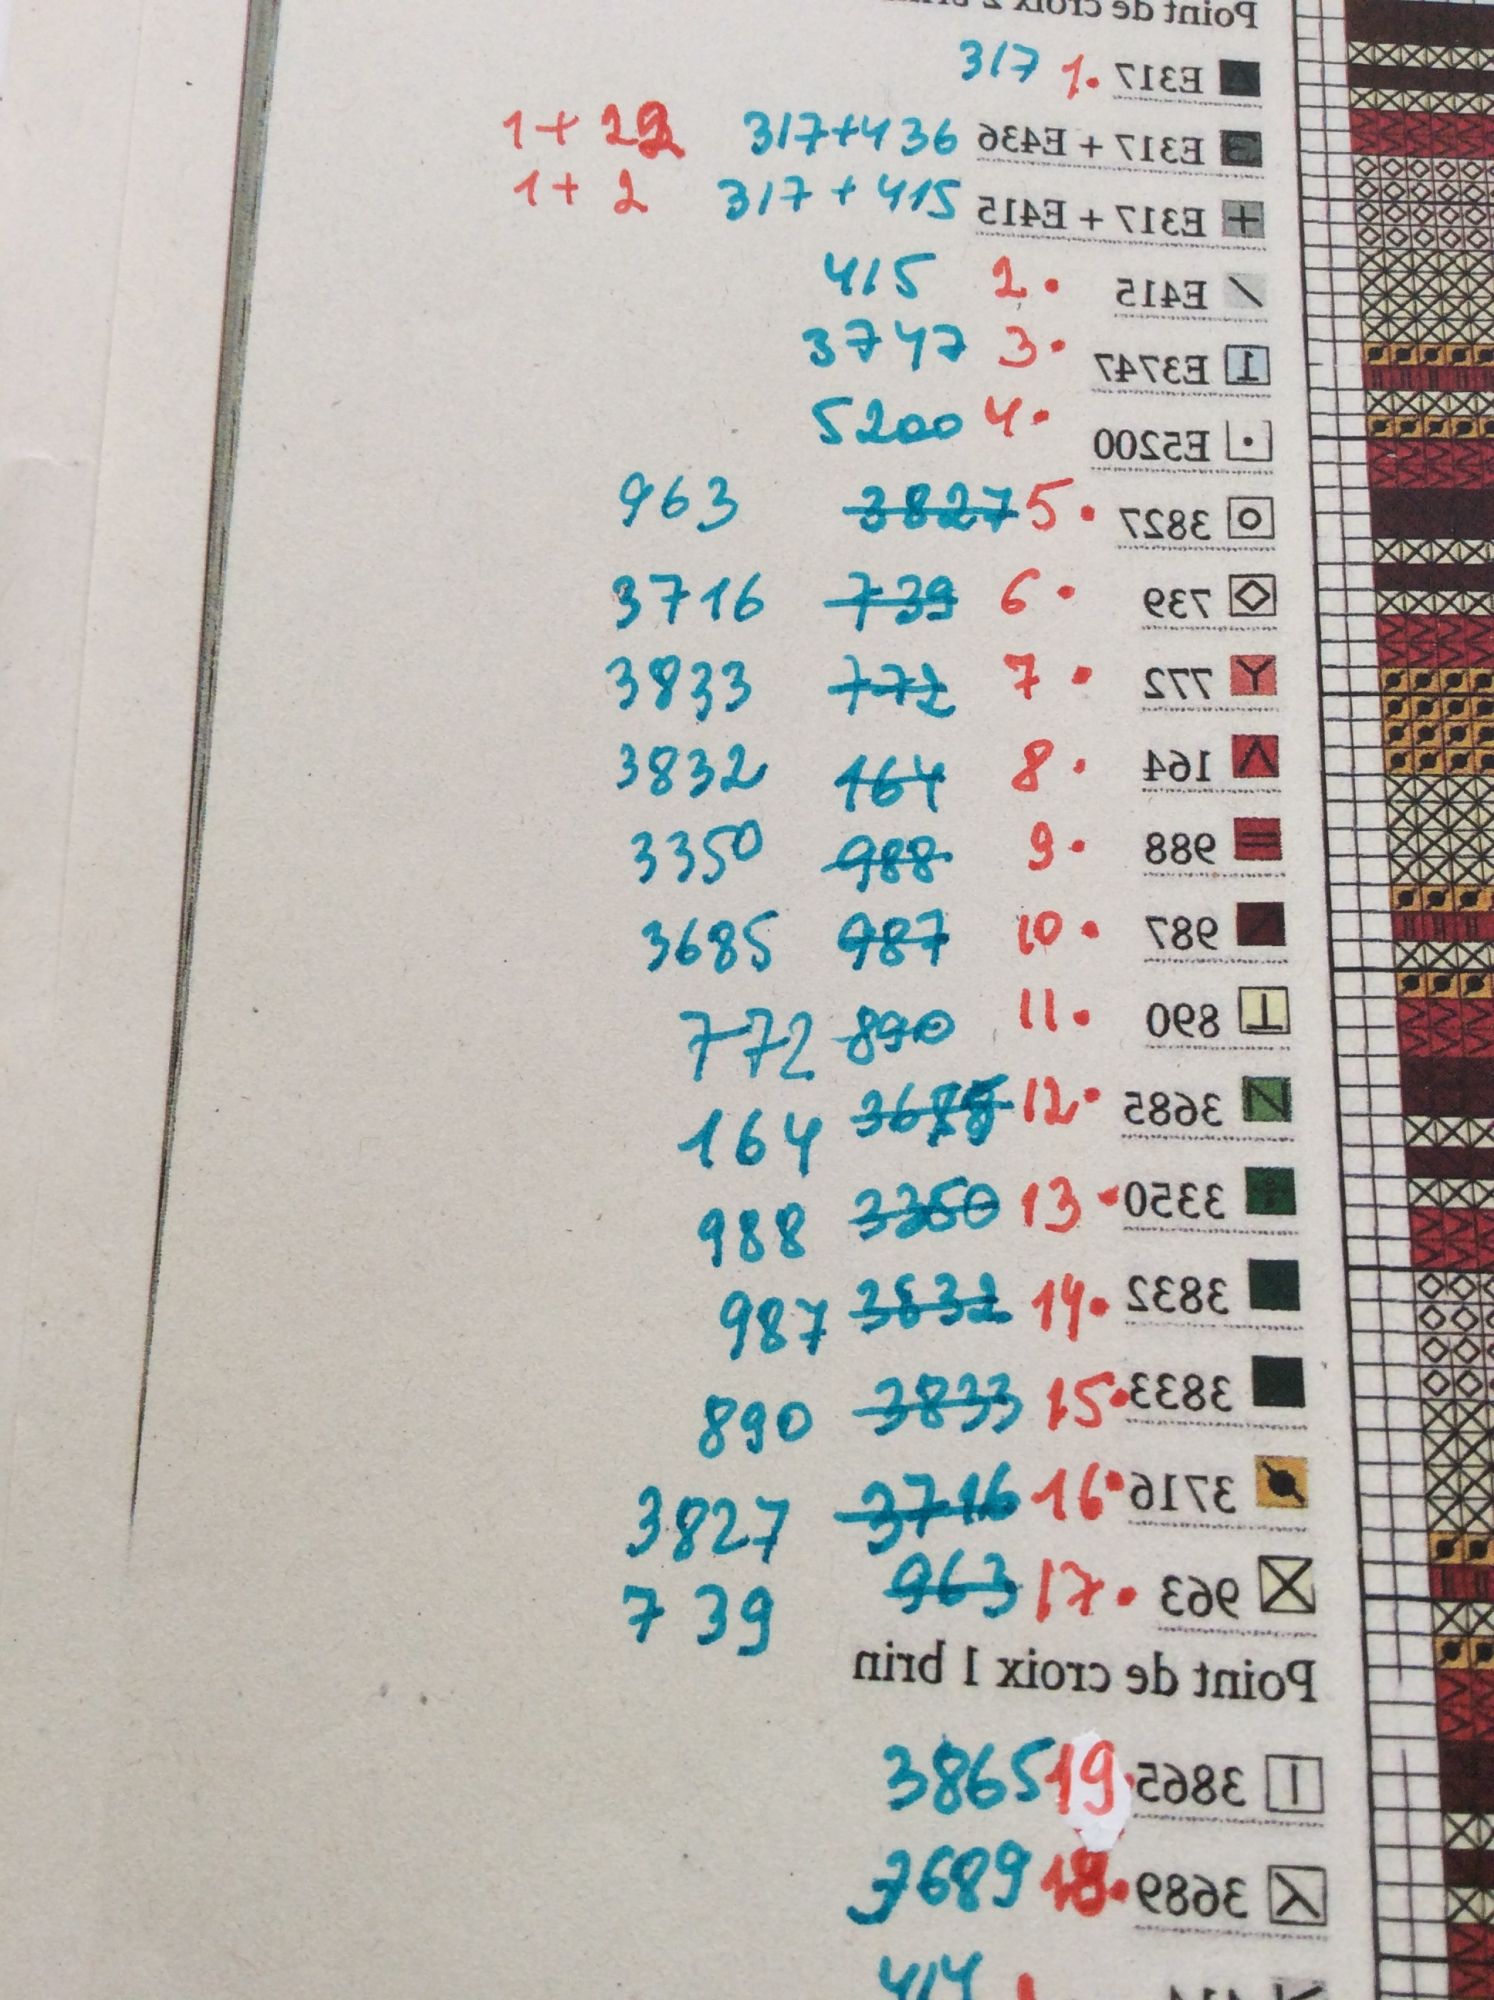 Point de croix 2
317 1. E317
1 + 22 317+436 E317 + E436
1 + 2 317 + 415 E317 + E415
415 2. E415
3747 3. E3747
5200 4. E5200
963 3827 5. 3827
3716 739 6. 739
3833 772 7. 772
3832 164 8. 164
3350 988 9. 988
3685 987 10. 987
772 890 11. 890
164 3685 12. 3685
988 3350 13. 3350
987 3832 14. 3832
890 3833 15. 3833
3827 3716 16. 3716
739 963 17. 963
Point de croix 1 brin
3865 19. 3865
3689 18. 3689
414